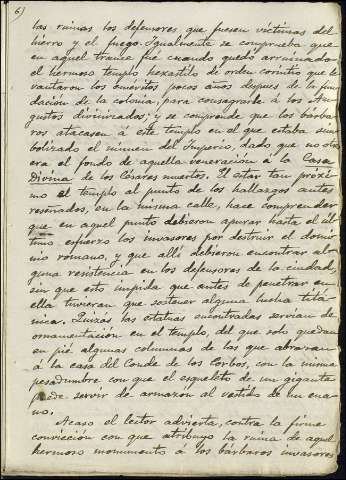 6)
las ruinas los defensores que fuesen víctimas del
hierro y el fuego. Igualmente se comprueba que
en aquel trance fue cuando quedó arruinado
el hermoso templo hexastilo de orden corintio que le-
vantaron los emeritos pocos años despues de la fun-
dación de la colonia, para consagrarle á los Au-
gustos divinizados; y se comprende que los bárba-
ros atacasen á este templo en el que estaba sim-
bolizado el númen del Imperio, dado que no otro
era el fondo de aquella veneracion á la Casa
Divina de los Césares muertos. El estar tan próxi-
mo el templo al punto de los hallazgos antes
reseñados, en la misma calle, hace comprender
que en aquel punto debieron apurar hasta el úl-
timo esfuerzo los invasores por destruir el domi-
nio romano, y que allí debieron encontrar al-
guna resistencia en los defensores de la ciudad,
sin que esto impida que antes de penetrar en
ella tuvieran que sostener alguna lucha titá-
nica. Quizás las estatuas encontradas servian de
ornamentación en el templo, del que solo quedan
en pié algunas columnas de las que abruman
á la casa del Conde de los Corbos, con la misma
pesadumbre con que el esqueleto de un gigante
puede servir de armazon al vestido de un ena-
no.
Acaso el lector advierta, contra la firme
convicción con que atribuyo la ruina de aquel
hermoso monumento á los bárbaros invasores